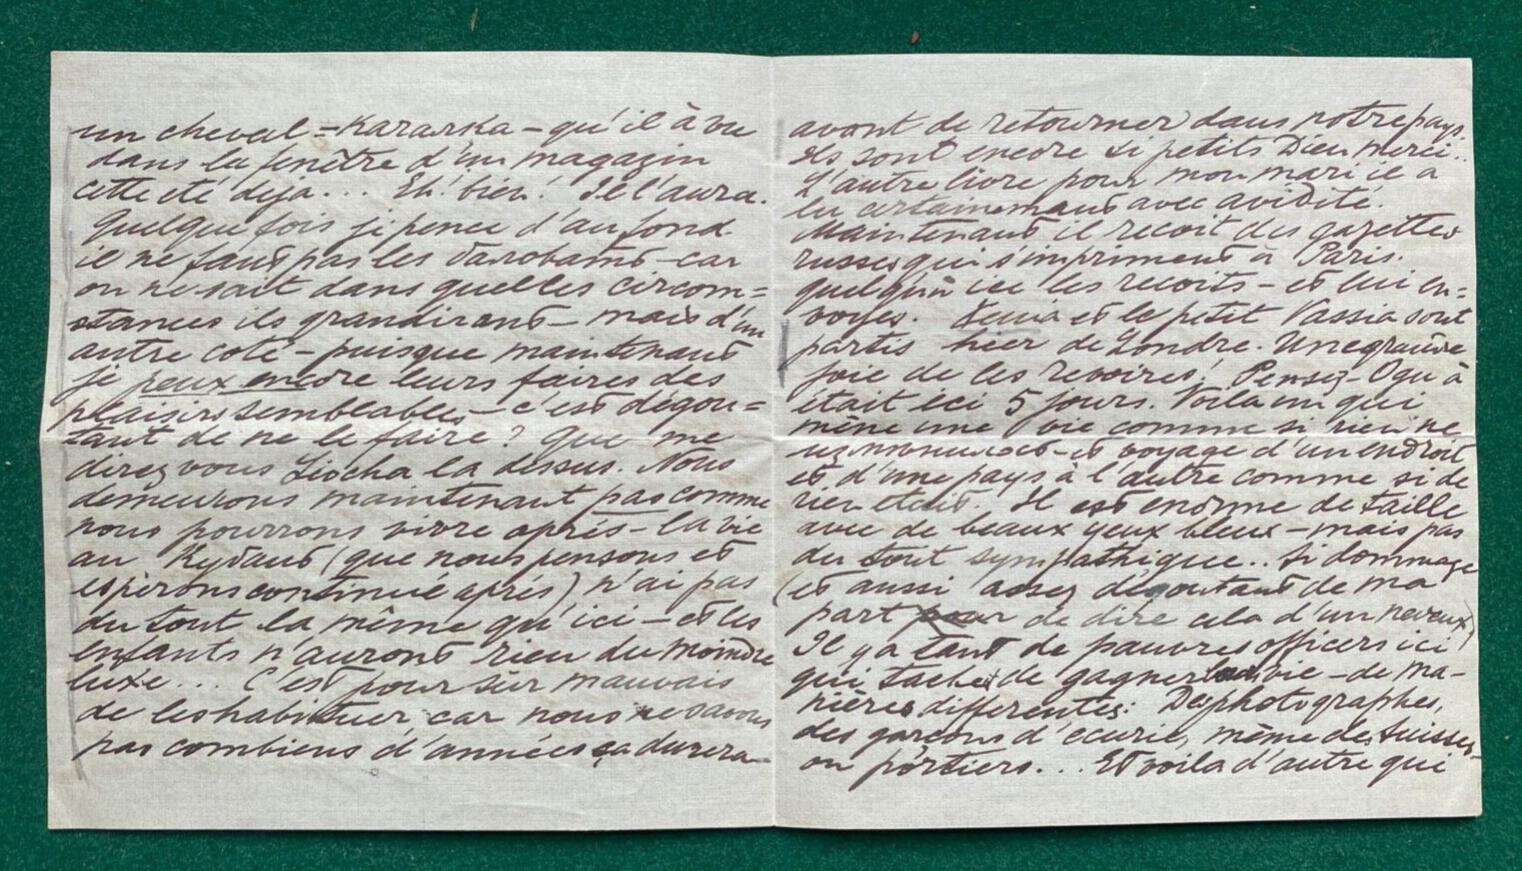 un cheval - Kararska - qu'il à vu
dans la fenêtre d'un magazin
cette été déja... Eh! bien! Il l'aura.
Quelque fois je pence d'au fond
il ne faut pas les - car
on ne sait dans quelles circom=
stances ils grandirant - mais d'un
autre coté - puisque maintenant
je peux encore leurs faires des
plaisirs semblables - c'est dégou=
tant de ne le faire? Que me
direz vous Liocha la dessus. Nous
demeurons maintenant pas comme
nous pourrons vivre aprés - la vie
au (que nous pensons et
espèrons continué aprés) n'ai pas
du tout la même qu'ici - et les
enfants n'auront rien du moindre
luxe... C'est pour sûr mauvais
de les habituer, car nous ne savons
pas combiens d'années ça durera
avant de retourner dans notre pays.
Ils sont encore si petits Dieu merci..
L'autre livre pour mon mari il a
lu certainemant avec avidité.
Maintenant il recoit des gazettes
russes qui s'impriment à Paris.
quelqu'un ici les recoits - et lui en=
voyes. Xenia et le petit Vassia sont
partis hier de Londre. Une grande
joie de les revoires! Pensez - Ogu à
était ici 5 jours. Voila un qui
mène une vie comme si rien ne
et voyage d'un endroit
et d'une pays à l'autre comme si de
rien était. Il est enorme de taille
avec de beaux yeux bleux - mais pas
du tout sympathique.. Si dommage
(et aussi assez dégoutant de ma
part de dire cela d'un neveux)
Il y a tant de pauvres officers ici
qui tachet de gagner la vie - de ma-
nières differentes: Des photographes,
des garcons d'écurie, même des suisses
ou portiers... Et voila d'autre qui